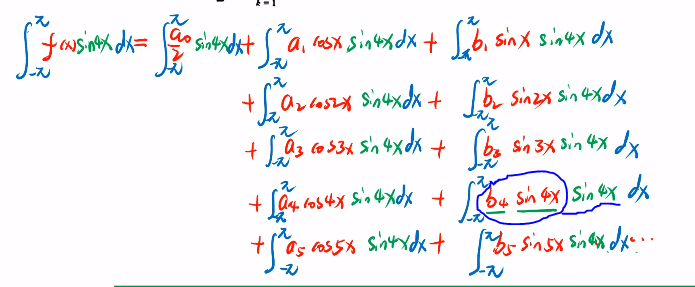 k=1
∫_{-π}^{π} f(x) sin4x dx = ∫_{-π}^{π} a₀/2 sin4x dx + ∫_{-π}^{π} a₁ cosx sin4x dx + ∫_{-π}^{π} b₁ sinx sin4x dx
+ ∫_{-π}^{π} a₂ cos2x sin4x dx + ∫_{-π}^{π} b₂ sin2x sin4x dx
+ ∫_{-π}^{π} a₃ cos3x sin4x dx + ∫_{-π}^{π} b₃ sin3x sin4x dx
+ ∫_{-π}^{π} a₄ cos4x sin4x dx + ∫_{-π}^{π} b₄ sin4x sin4x dx
+ ∫_{-π}^{π} a₅ cos5x sin4x dx + ∫_{-π}^{π} b₅ sin5x sin4x dx ...